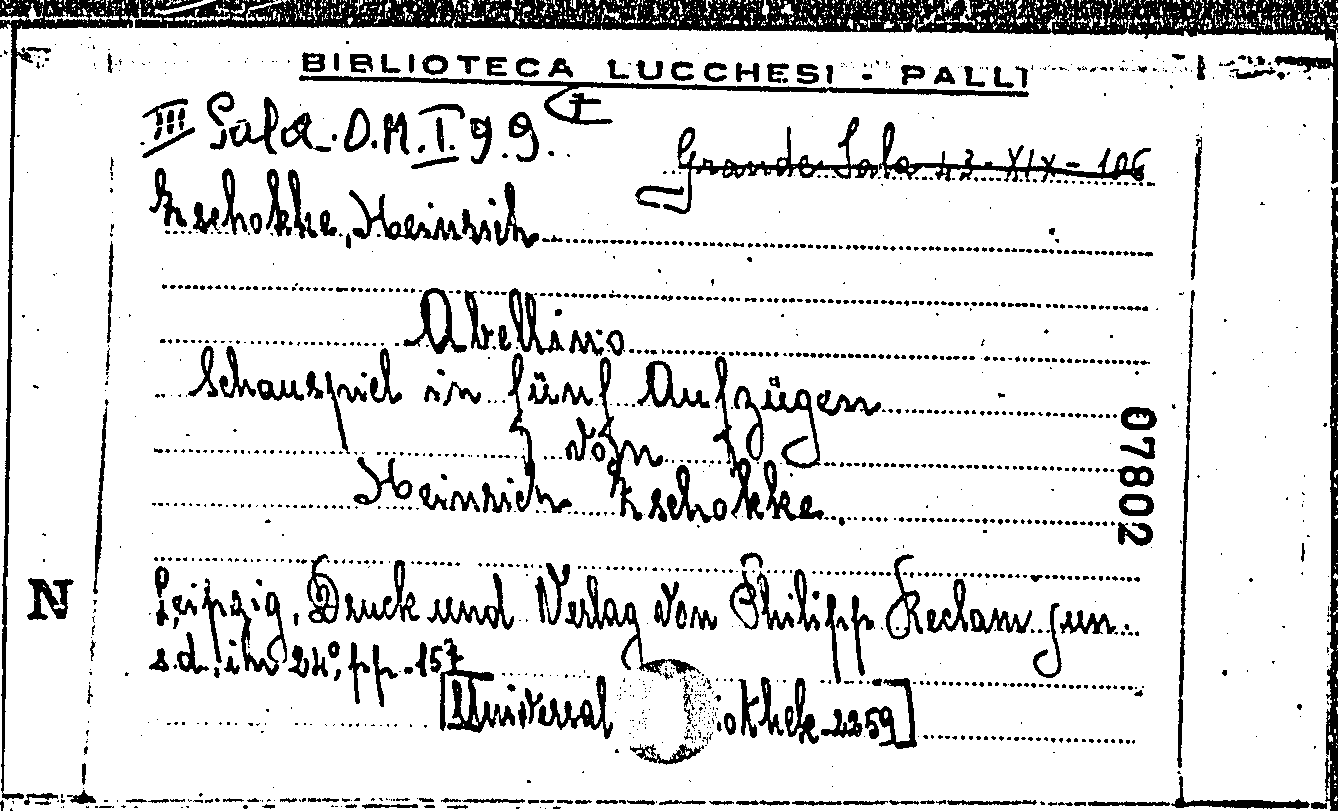 BIBLIOTECA LUCCHESI - PALLI
III Sala. D.M.I.99.
Grande Sala 43-XIX-106
Zschokke, Heinrich
Abellino
Schauspiel in fünf Aufzügen
von
Heinrich Zschokke.
07802
N
Leipzig, Druck und Verlag von Philipp Reclam jun.
s.d. in 24°, pp. 157
[Universal iothek-2259]